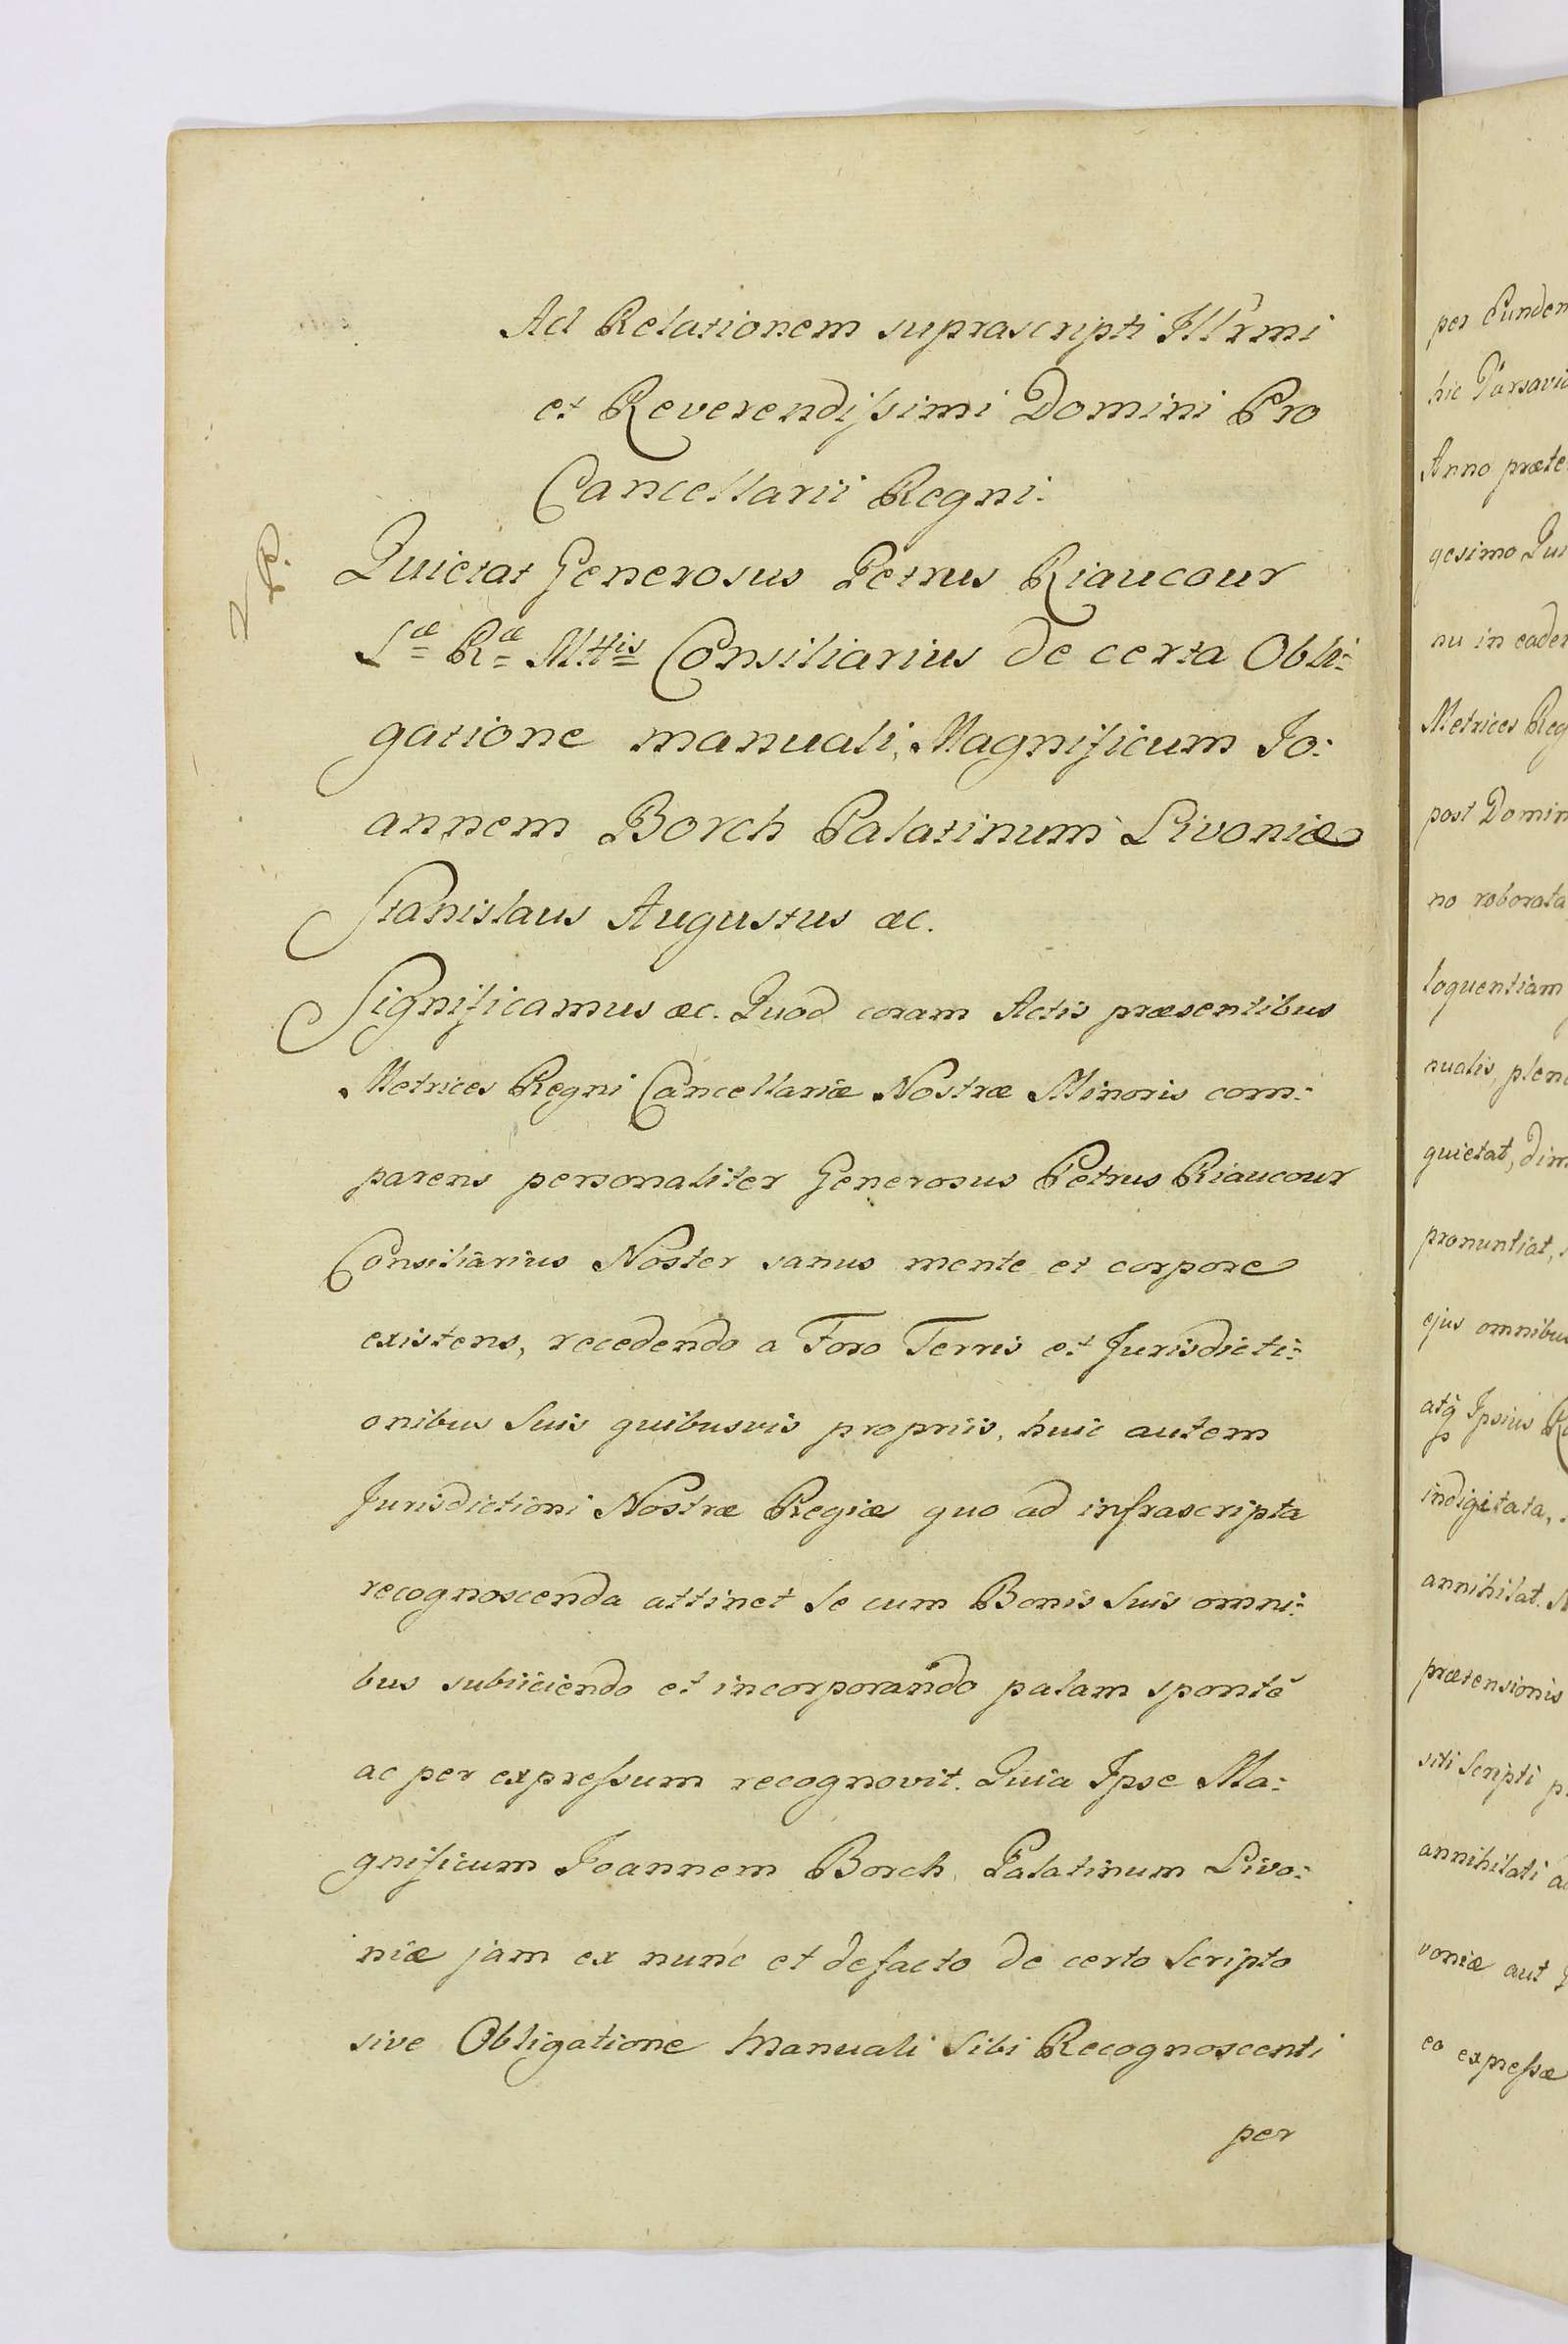 Ad Relationem suprascripti Ill'rmi
et Reverendissimi Domini Pro
Cancellarii Regni.
V. P.
Quietat Generosus Petrus Riaucour
Sæ Ræ Mttis Consiliarius de certa Obli-
gatione manuali, Magnificum Jo-
annem Borch Palatinum Livoniæ
Stanislaus Augustus æc.
Significamus æc. Quod coram Actis præsentibus
Metrices Regni Cancellariæ Nostræ Minoris com-
parens personaliter Generosus Petrus Riaucour
Consiliarius Noster sanus mente et corpore
existens, recedendo a Foro Terris et Jurisdicti-
onibus Suis quibusvis propriis, huic autem
Jurisdictioni Nostræ Regiæ quo ad infrascripta
recognoscenda attinet Se cum Bonis Suis omni-
bus subiiciendo et incorporando palam spontè
ac per expressum recognovit. Quia Ipse Ma-
gnificum Joannem Borch, Palatinum Livo-
niæ jam ex nunc et defacto de certo Scripto
sive Obligatione Manuali Sibi Recognoscenti
per
per Eunden
hic Varsavi
Anno præte
gesimo Qui
nu in eader
Metrices Reg
post Domin
no roborata
loquentiam
nualis, plen
quietat, dim
pronuntiat,
ejus omnibus
atq Ipsius
indigitata,
annihilat.
prætensionis
siti Scripti p
annihilati a
voniæ aut
eo expressæ